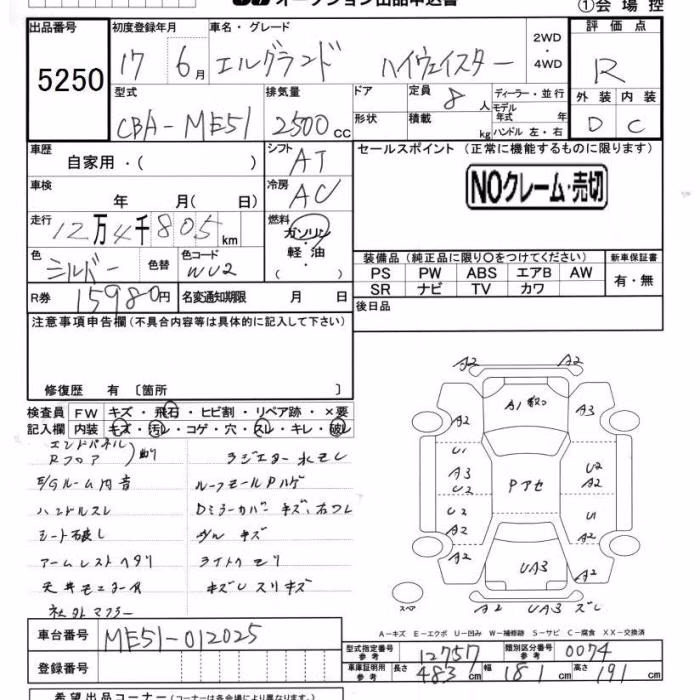 オークション出品申込書
①会場控
出品番号 初度登録年月 車名・グレード 2WD・4WD 評価点
5250 17 6月 エルグランド ハイウェイスター R
型式 排気量 ドア 定員 8人 ディーラー・並行 外装 内装
CBA-ME51 2500cc 形状 積載 kg モデル年式 年 ハンドル 左・右 D C
車歴 自家用・( ) シフト AT セールスポイント (正常に機能するものに限ります)
車検 年 月( 日) 冷房 AC NOクレーム・売切
走行 12万4千805km 燃料 ガソリン・軽油 ( )
色 シルバー 色替 色コード WV2
装備品 (純正品に限り○をつけてください) 新車保証書
PS PW ABS エアB AW 有・無
SR ナビ TV カワ
R券 15980円 名変通知期限 月 日 後日品
注意事項申告欄 (不具合内容等は具体的に記入して下さい)
修復歴 有 〔箇所 〕
検査員 FW キズ・飛石・ヒビ割・リペア跡・×要
記入欄 内装 キズ・汚レ・コゲ・穴・スレ・キレ・破レ
エンドパネル
Rフロア
ラジエター水モレ
E/Gルーム内音
ルーフモールPハゲ
ハンドルスレ
Dミラーカバーキズ、右ワレ
シート破レ
キズ
アームレストヘタリ
ライトクモリ
天井モニター
社外マフラー
A2 A2
A1
A2 A3
U1
A3 U2
U2 A2
Pアセ
U2 U1
A2 A2
A2 A2
UA3
A2 UA3 ズレ
スペア
A-キズ E-エクボ U-凹み W-補修跡 S-サビ C-腐食 XX-交換済
車台番号 ME51-012025
型式指定番号 参考 12757 類別区分番号 参考 0074
登録番号
車庫証明用 参考 長さ 483cm 幅 181cm 高さ 191cm
希望出品コーナー(スペースの関係で各会場により